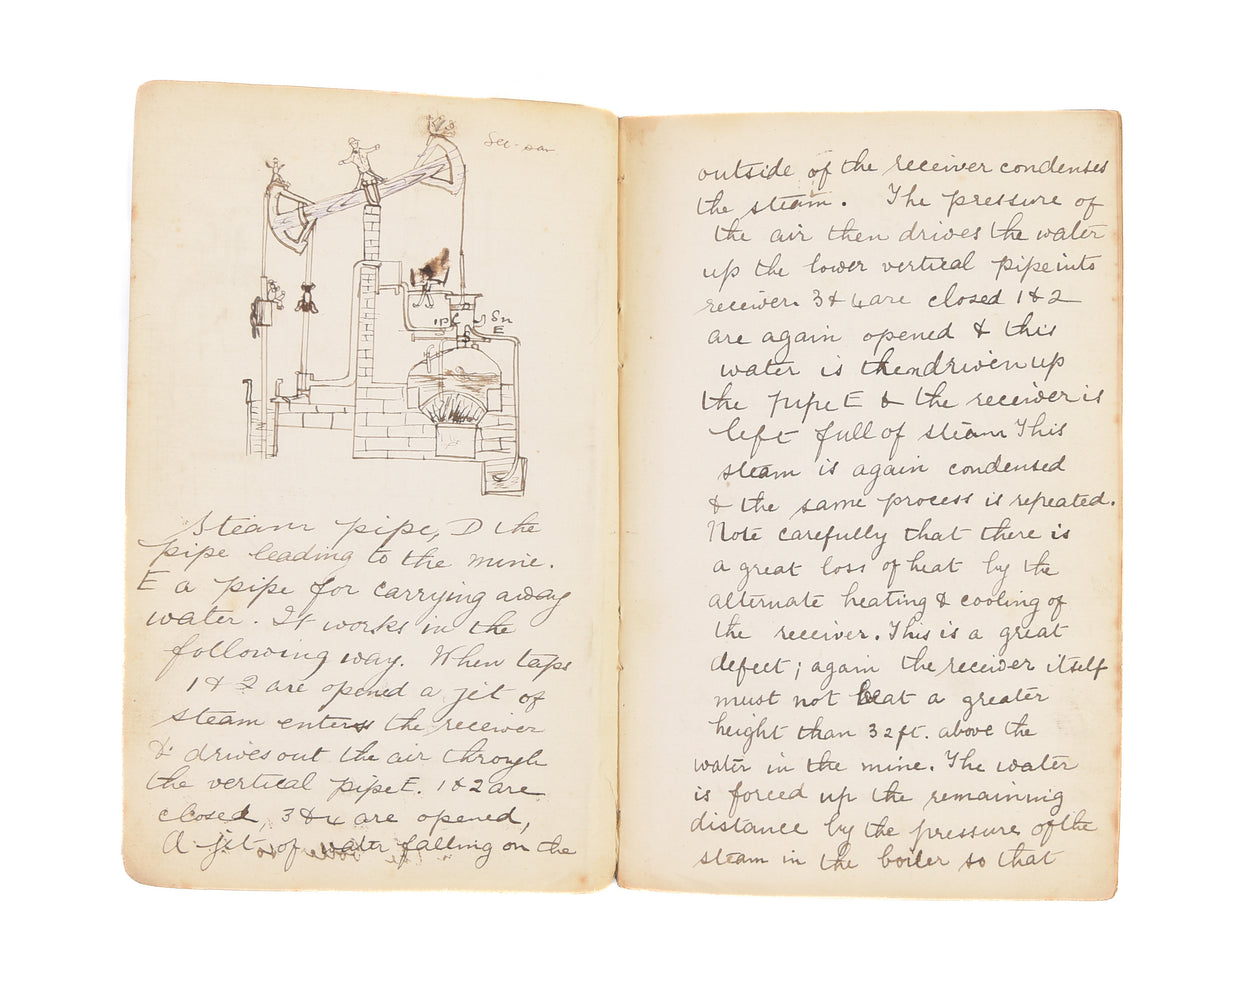 See-saw
Sn
E
Steam pipe, D the
pipe leading to the mine.
E a pipe for carrying away
water. It works in the
following way. When taps
1 & 2 are opened a jet of
steam enters the receiver
& drives out the air through
the vertical pipe E. 1 & 2 are
closed, 3 & 4 are opened,
A jet of water falling on the
outside of the receiver condenses
the steam. The pressure of
the air then drives the water
up the lower vertical pipe into
receiver. 3 & 4 are closed 1 & 2
are again opened & this
water is then driven up
the pipe E & the receiver is
left full of steam This
steam is again condensed
& the same process is repeated.
Note carefully that there is
a great loss of heat by the
alternate heating & cooling of
the receiver. This is a great
defect; again the receiver itself
must not be at a greater
height than 32 ft. above the
water in the mine. The water
is forced up the remaining
distance by the pressure of the
steam in the boiler so that